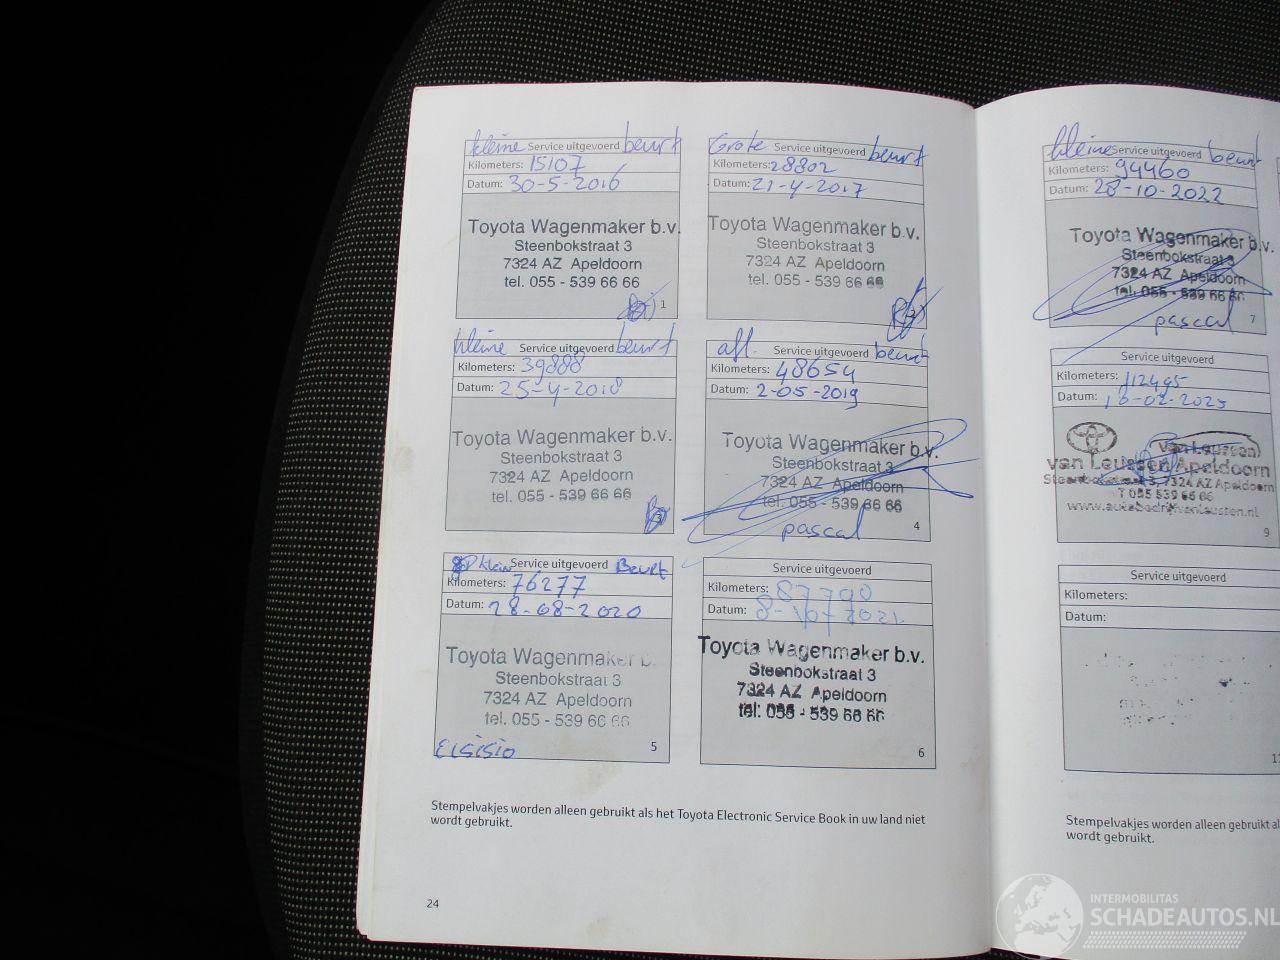 kleine Service uitgevoerd beurt
Kilometers: 15107
Datum: 30-5-2016
Toyota Wagenmaker b.v.
Steenbokstraat 3
7324 AZ Apeldoorn
tel. 055 - 539 66 66
1
Grote Service uitgevoerd beurt
Kilometers: 28802
Datum: 21-4-2017
Toyota Wagenmaker b.v.
Steenbokstraat 3
7324 AZ Apeldoorn
tel. 055 - 539 66 66
2
kleine Service uitgevoerd beurt
Kilometers: 39888
Datum: 25-4-2018
Toyota Wagenmaker b.v.
Steenbokstraat 3
7324 AZ Apeldoorn
tel. 055 - 539 66 66
3
Service uitgevoerd beurt
Kilometers: 48654
Datum: 2-05-2019
Toyota Wagenmaker b.v.
Steenbokstraat 3
7324 AZ Apeldoorn
tel. 055 - 539 66 66
pascal
4
klein Service uitgevoerd Beurt
Kilometers: 76277
Datum: 28-08-2020
Toyota Wagenmaker b.
Steenbokstraat 3
7324 AZ Apeldoorn
tel. 055 - 539 66 66
5
Service uitgevoerd
Kilometers: 87790
Datum: 8-107 2021
Toyota Wagenmaker b.v.
Steenbokstraat 3
7324 AZ Apeldoorn
tel. 055 - 539 66 66
6
Stempelvakjes worden alleen gebruikt als het Toyota Electronic Service Book in uw land niet
wordt gebruikt.
24
kleine Service uitgevoerd beurt
Kilometers: 94460
Datum: 28-10-2022
Toyota Wagenmaker b.v.
Steenbokstraat 3
7324 AZ Apeldoorn
tel. 055 - 539 66 66
pascal
7
Service uitgevoerd
Kilometers: 112495
Datum: 10-02-2025
van Leussen Apeldoorn
Steenbokstraat 3, 7324 AZ Apeldoorn
T 055 539 66 66
www.autobedrijfvanleussen.nl
9
Service uitgevoerd
Kilometers:
Datum:
Stempelvakjes worden alleen gebruikt al
wordt gebruikt.
INTERMOBILITAS
SCHADEAUTOS.NL